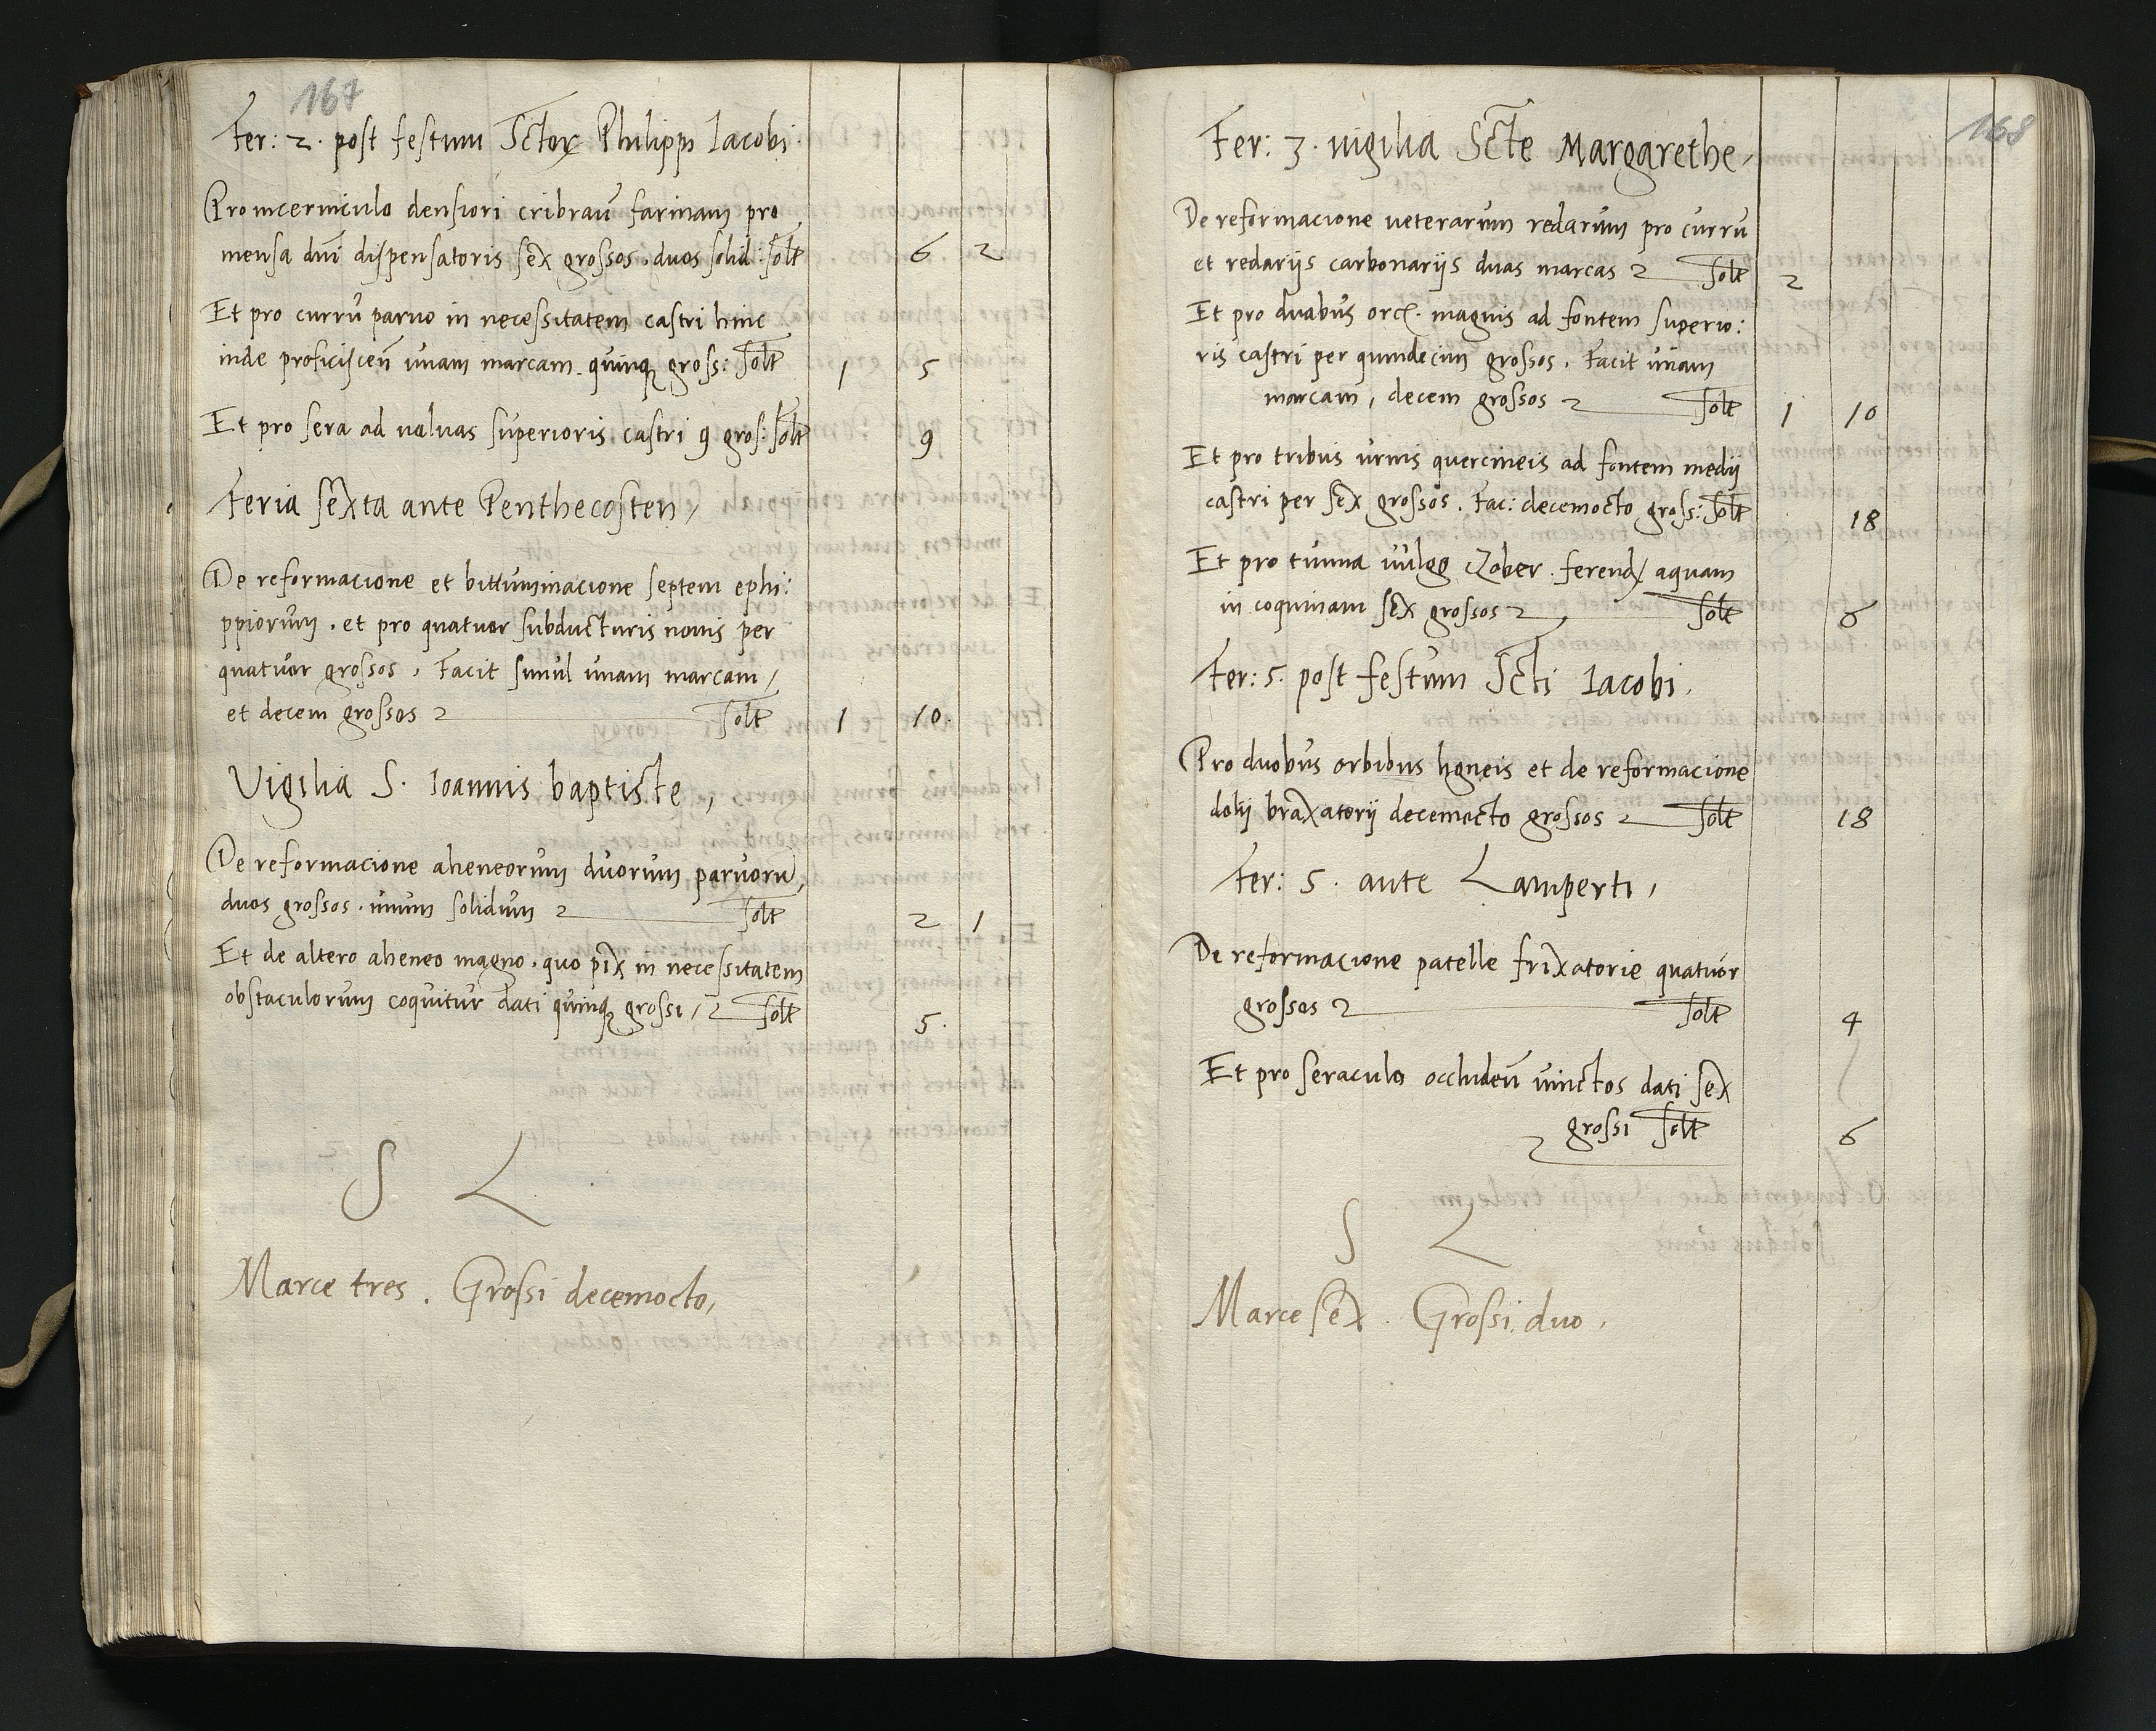 167
Fer: 2. post festum Sctor Philippi Iacobi.
Pro incerniculo densiori cribran̄ farinam pro
mensa dn̄i dispensatoris sex grossos. duos solid: solt 6 2
Et pro curru paruo in necessitatem castri hinc
inde proficiscen̄ vnam marcam. quinq gross: solt 1 5
Et pro sera ad valuas superioris castri 9 gros: solt 9
Feria sexta ante Penthecosten,
De reformacione et bittuminacione septem ephi:
ppiorum. et pro quatuor subducturis nouis per
quatuor grossos. Facit simul vnam marcam,
et decem grossos solt 1 10.
Vigilia S. Ioannis baptiste,
De reformacione aheneorum duorum paruorū,
duos grossos. vnum solidum solt 2 1
Et de altero aheneo magno. quo pix in necessitatem
obstaculorum coquitur dati quinq grossi, solt 5.
S L
Marce tres. Grossi decemocto,
168
Fer: 3. vigilia Scte Margarethe,
De reformacione veterarum redarum pro curru
et redariis carbonariis duas marcas solt 2
Et pro duabus orc. magnis ad fontem superio:
ris castri per quindecim grossos. Facit vnam
marcam, decem grossos solt 1 10
Et pro tribus vrnis quercineis ad fontem medij
castri per sex grossos. Fac: decemocto gross: solt 18
Et pro tunna vulgo Zober. ferend aquam
in coquinam sex grossos solt 6
Fer: 5. post festum Scti Iacobi.
Pro duobus orbibus ligneis et de reformacione
dolij braxatorij decemocto grossos solt 18
Fer: 5. ante Lamperti,
De reformacione patelle frixatorie quatuor
grossos solt 4
Et pro seraculo occluden̄ vinctos dati sex
grossi solt 6
S L
Marce sex. Grossi duo.